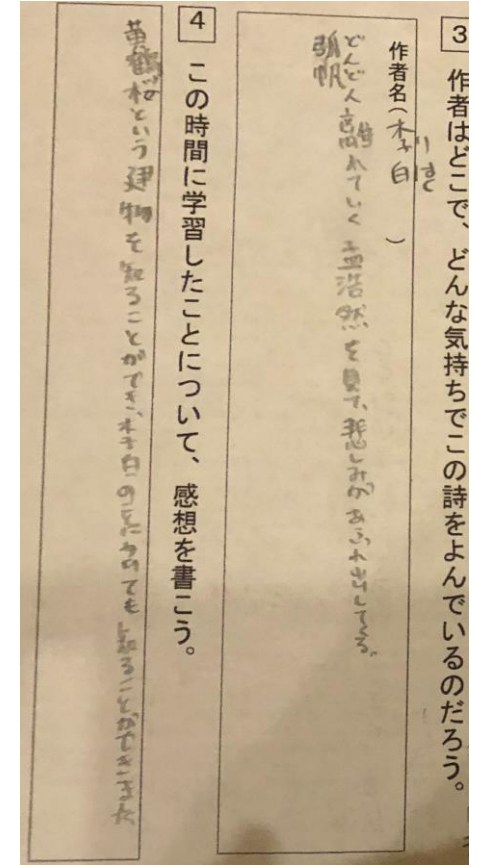 3
作者はどこで、どんな気持ちでこの詩をよんでいるのだろう。
りはく
作者名(李白)
どんどん離れていく孟浩然を見て、悲しみがあふれ出してる。
孤帆
4
この時間に学習したことについて、感想を書こう。
黄鶴楼という建物を知ることができ、李白の気についても知ることができました